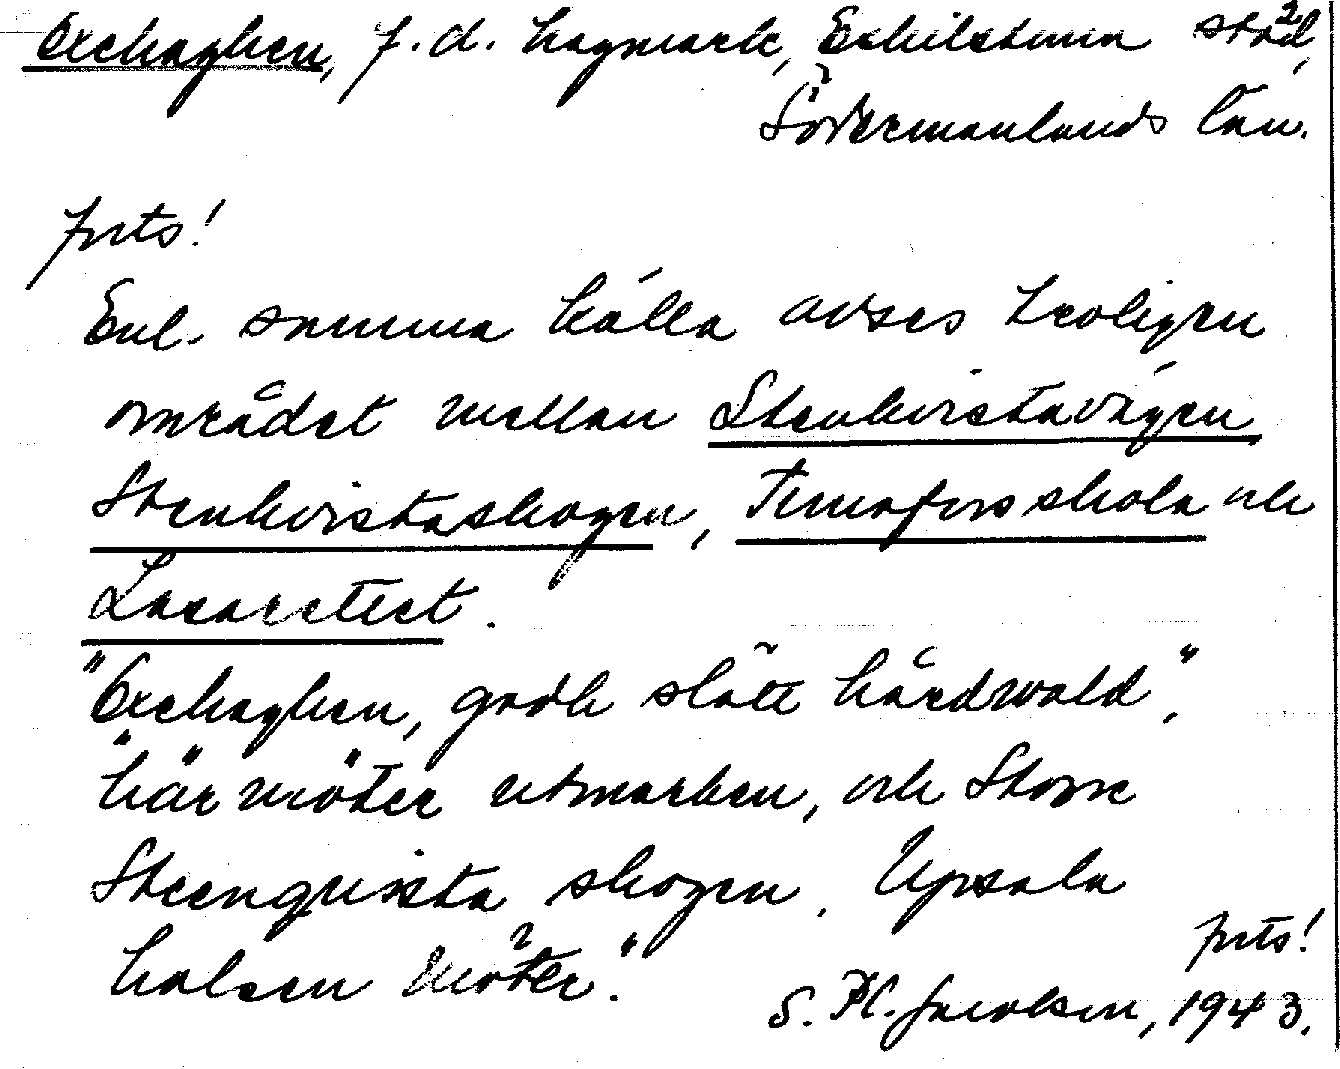 Oxehaghen, f.d. hagmark, Eskilstuna stad,
Södermanlands län.
forts!
Enl. samma källa avses troligen
området mellan Stenkvistavägen
Stenkvistaskogen, Tunaforsskola och
Lasarettet.
"Oxehaghen, godh slätt hårdwald",
"här möter utmarken, och Store
Steenquista skogen. Upsala
holsen möter."
forts!
S. Pl. Jacobson, 1943.